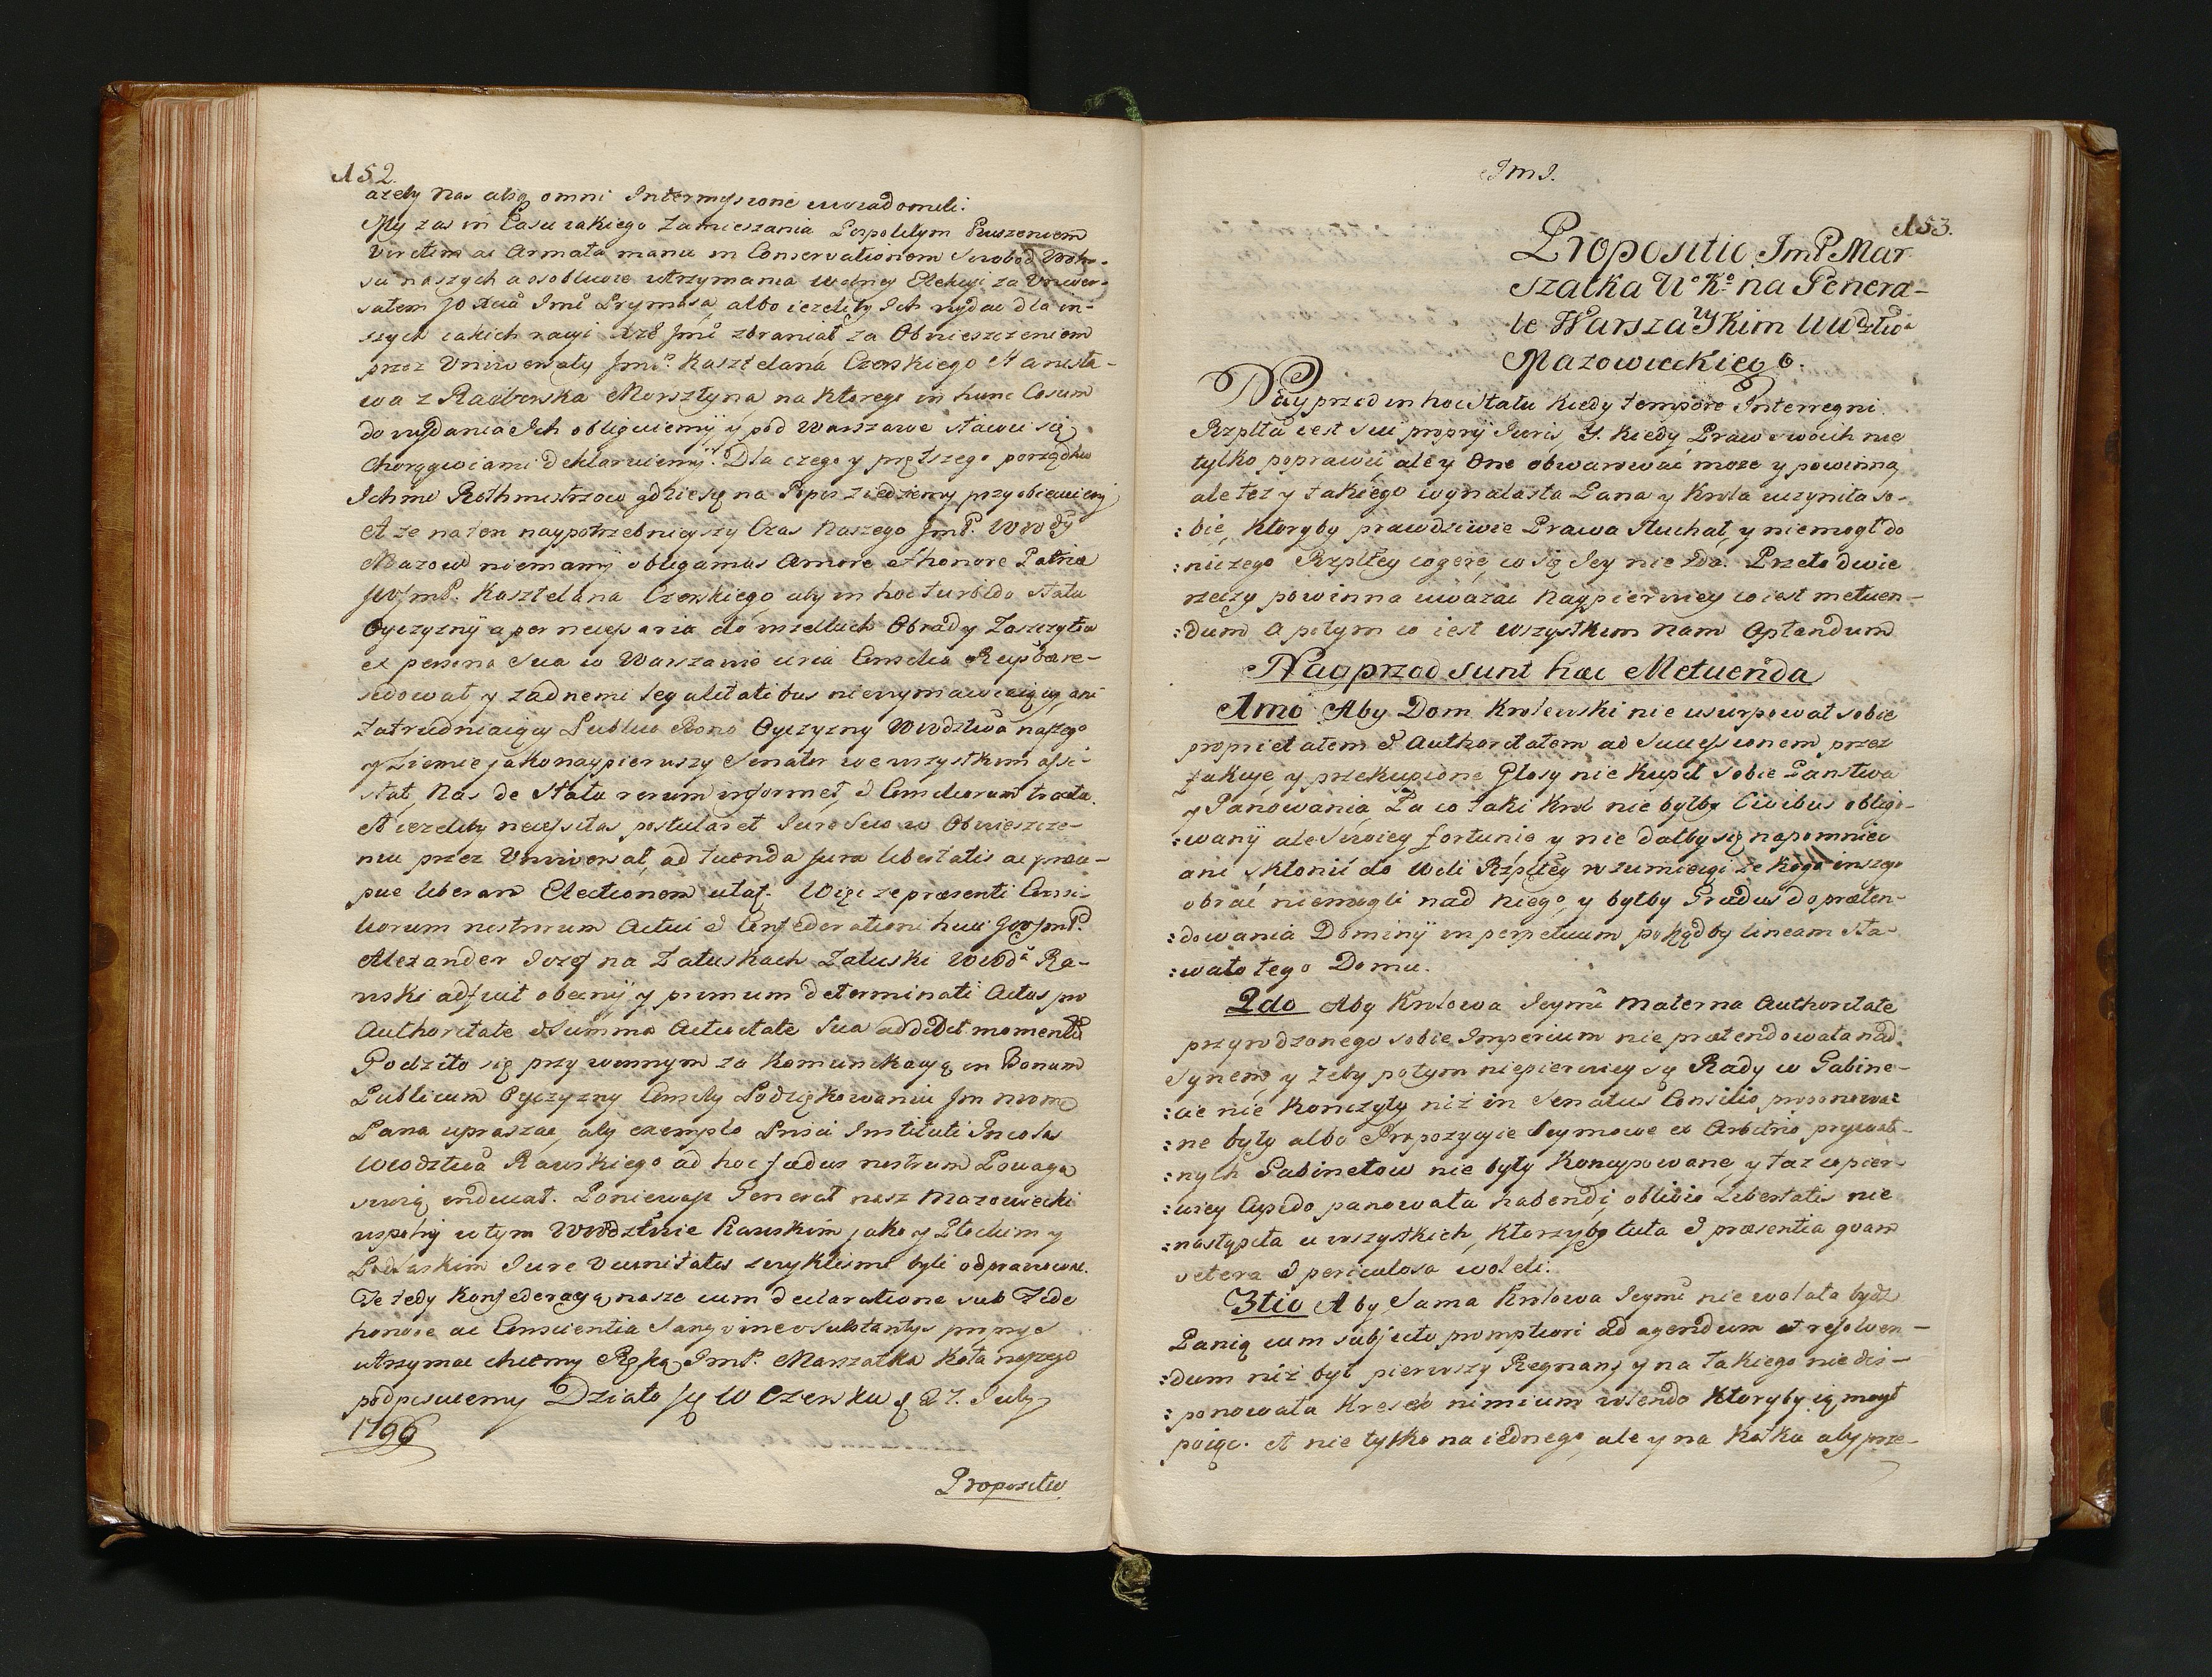 152.
ażeby Nas absq omni Intermyssione uwiadomili.
My zas in Casu iakiego Zamieszania Pospolitym Ruszeniem
Viritim ac Armata manu in Conservationem Swobod
su naszych a osobliwie utrzymania wolney Elekcyi za Uniwer-
sałem JO Xcia Jmci Prymasa, albo ieżeliby Ich wydać dla in-
szych iakich racyi Xże Jmć zbraniał, za Obwieszczeniem
przez Uniwersały Jmci Kasztelana Czerskiego Stanisła-
wa z Raciborska Morsztyna na Ktorego in hunc Casum
do wydania Ich obliguiemy, y pod Warszawe stawić się
Chorągwiami deklaruiemy. Dla czego y prętszego porządku
Ichmc Rothmistrzow gdzie się na Popis ziedziemy przyobiecuiemy
A że na ten naypotrzebnieyszy Czas Naszego JmP. Wwdy
Mazow niemamy obligamus Amore et honore Patriæ
JWJmP. Kasztelana Czerskiego aby in hoc turbido Statu
Oyczyzny a per necessaria do wszelkich Obrad y Zaszczytu
ex persona Sua w Warszawie circa Consilia Reipbcæ re-
sidował, y żadnemi legalitatibus niewymawiaiący, ani
zatrudniaiący Publico Bono Oyczyzny Wwdztwa naszego
y Ziemie jako naypierwszy Senator we wszystkim assi-
stat, Nas de Statu rerum informet, et Consiliorum tracta.
A ieżeliby necessitas postularet Iure Suo w Obwieszcze-
niu przez Uniwersał, ad tuenda Jura libertatis ac præci-
pue liberam Electionem utat. Więc że præsenti Consi-
liorum nostrorum Actui et Confederationi huic JWJmP.
Alexander Jozef na Załuskach Załuski Wwda Ra-
wski adfuit obecny y primum determinati Actus pro
Authoritate et Summa Activitate Sua addidit momentū
Podziło się przy winnym za Komunikacyą in Bonum
Publicum Oyczyzny Consily Podziękowaniu Jm
Pana upraszać, aby exemplo Prisci Instituti Incolas
Wwodztwa Rawskiego ad hoc fædus nostrum Powagą
swoią indukał. Ponieważ Generał nasz Mazowiecki
wspolny w tym Wwodztwie Rawskim jako y Płockim y
Podlaskim Iure Vicinitatis zwykliśmy byli odprawować.
Te tedy Konfederacyą nasze cum declaratione sub Fide
honore ac Conscientia Sangvine et substantys proprys
utrzymać chcemy Ręką JmP. Marszałka Koła naszego
podpisuiemy Działo się w Czersku d 27. July
1796
Propositio
JmJ.
153.
Propositio JmP. Mar
szałka Uo Ko. na Genera-
le Warszawskim Wudztwa
Mazowieckiego.
Nayprzod in hoc Statu kiedy tempore Interregni
Rzplta iest Sui proprij Iuris, Y. kiedy Praw swoich nie
tylko poprawić, ale y One obwarować może y powinna
ale też y takiego wynalasła Pana y Krola uczyniła so-
:bie, Ktoryby prawdziwie Prawa słuchał, y niemogł do
:niczego Rzpltey cogere, co się Jey nie zda. Przeto dwie
rzeczy powinna uważać Naypierwey co iest metuen-
:dum a potym co iest wszystkim nam Optandum
Nayprzod sunt hæc Metuenda
1mo Aby Dom Krolewski nie usurpował sobie
proprietatem et Authoritatem ad Successionem przez
fakcye y przekupione Głosy nie kupił sobie Panstwa
y Panowania, Za co taki Krol nie byłby Civibus obligo-
:wany ale Swoiey fortunie y nie dałby się napomniec
ani skłonić do Woli Rzpltey rozumieiąc że kogo inszego
obrać niemogli nad niego, y byłby Gradus do præten-
:dowania Dominij in perpetuum pokądby lineam sta-
:wało tego Domu.
2do Aby Krolowa Jeymć Materna Authoritate
przyrodzonego sobie Imperium nie prætendowała nad
Synem, y żeby potym niepierwey się Rady w Gabine-
:cie nie kończyły niż in Senatus Consilio proponowa:
:ne były albo Propozycyie Seymowe ex Arbitrio prywat-
:nych Gabinetow nie były koncypowane, y taż co pier-
:wiey Cupido panowała habendi, oblivio Libertatis nie
:nastąpiła u wszystkich, Ktorzyby tuta et præsentia quam
vetera et periculosa woleli.
3tio Aby Sama Krolowa Jeymć nie wolała bydź
Panią cum subjecto promptiori ad agendum et resolven-
:dum niż był pierwszy Regnans y na takiego nie dis-
:ponowała Kresek nimium volendo Ktoryby ią mogł
poiąć. A nie tylko na iednego, ale y na Kilku aby prze-